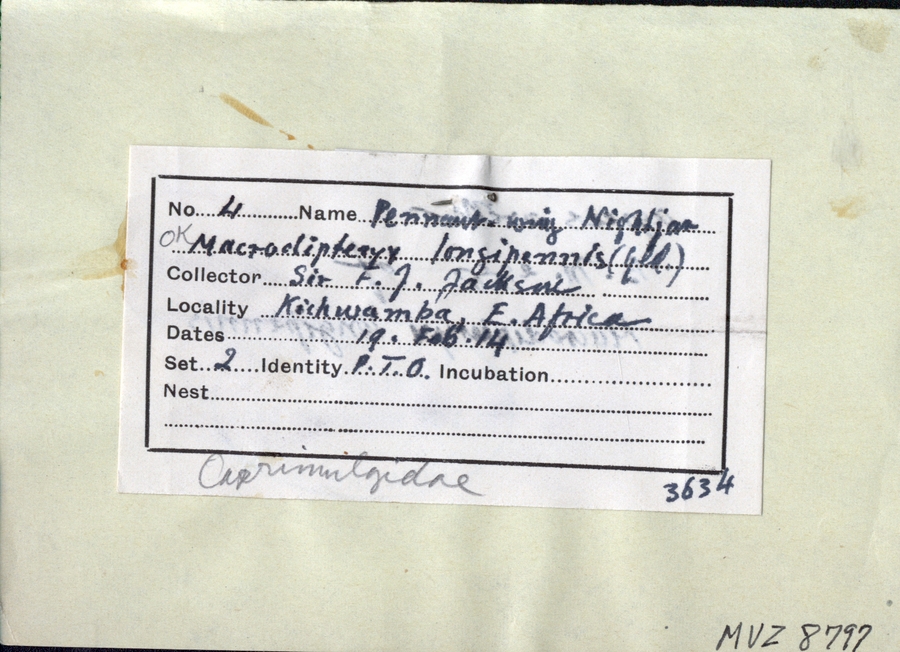 No. 4 Name Pennant-wing Nightjar
OK Macrodipteryx longipennis
Collector Sir F. J. Jackson
Locality Kichwamba, E. Africa
Dates 19. Feb. 14
Set 2 Identity P.T.O. Incubation
Nest
Caprimulgidae
3634
MVZ 8797